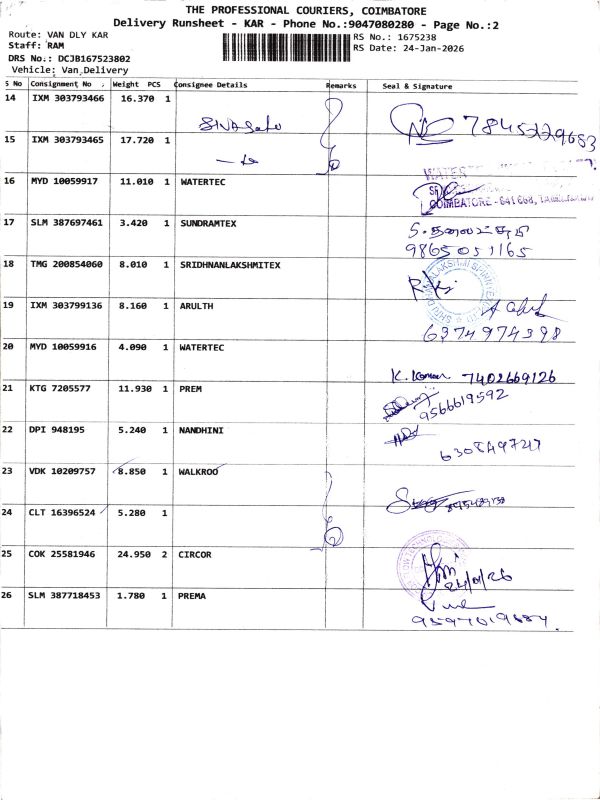 THE PROFESSIONAL COURIERS, COIMBATORE
Delivery Runsheet - KAR - Phone No.:9047080280 - Page No.:2
Route: VAN DLY KAR
RS No.: 1675238
Staff: RAM
RS Date: 24-Jan-2026
DRS No.: DCJB167523802
Vehicle: Van,Delivery
S No Consignment No Weight PCS Consignee Details Remarks Seal & Signature
14 IXM 303793466 16.370 1 7845229683
15 IXM 303793465 17.720 1
16 MYD 10059917 11.010 1 WATERTEC COIMBATORE - 641 668,
17 SLM 387697461 3.420 1 SUNDRAMTEX
9865051165
18 TMG 200854060 8.010 1 SRIDHNANLAKSHMITEX
19 IXM 303799136 8.160 1 ARULTH
6374974398
20 MYD 10059916 4.090 1 WATERTEC
K. Kumar 7402669126
21 KTG 7205577 11.930 1 PREM
9566619592
22 DPI 948195 5.240 1 NANDHINI
23 VDK 10209757 8.850 1 WALKROO
24 CLT 16396524 5.280 1
25 COK 25581946 24.950 2 CIRCOR
24/01/26
26 SLM 387718453 1.780 1 PREMA